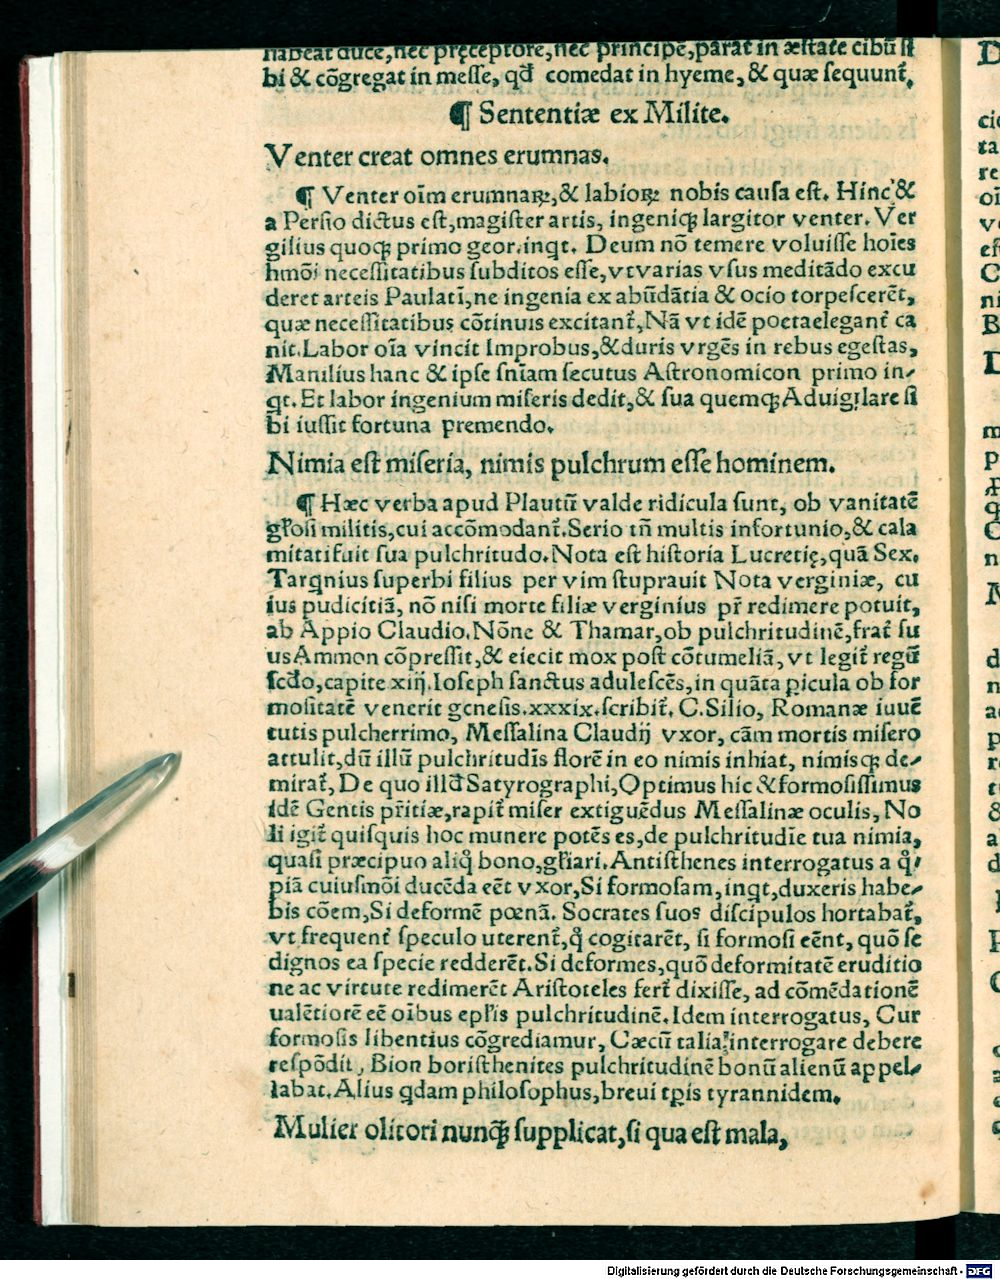 habeat duce, nec pręceptore, nec principe, parat in æstate cibū si
bi & cōgregat in messe, qđ comedat in hyeme, & quæ sequunt᷑.
¶ Sententiæ ex Milite.
Venter creat omnes erumnas.
¶ Venter oīm erumnaꝝ, & labioꝝ nobis causa est. Hinc &
a Persio dictus est, magister artis, ingeniqꝫ largitor venter. Ver
gilius quoqꝫ primo geor. inqt. Deum nō temere voluisse hoīes
hmōi necessitatibus subditos esse, vt varias vsus meditādo excu
deret arteis Paulatī, ne ingenia ex abūdātia & ocio torpescerēt,
quæ necessitatibus cōtinuis excitant᷑, Nā vt idē poeta elegant᷑ ca
nit. Labor oīa vincit Improbus, & duris vrgēs in rebus egestas,
Manilius hanc & ipse snīam secutus Astronomicon primo in-
qt. Et labor ingenium miseris dedit, & sua quemqꝫ Aduigilare si
bi iussit fortuna premendo.
Nimia est miseria, nimis pulchrum esse hominem.
¶ Hæc verba apud Plautū valde ridicula sunt, ob vanitatē
gl'osi militis, cui accōmodant᷑. Serio tn̄ multis infortunio, & cala
mitati fuit sua pulchritudo. Nota est historia Lucretię, quā Sex.
Tarqnius superbi filius per vim stuprauit Nota verginiæ, cu
ius pudicitiā, nō nisi morte filiæ verginius pr̄ redimere potuit,
ab Appio Claudio. Nōne & Thamar, ob pulchritudinē, frat᷑ su
us Ammon cōpressit, & eiecit mox post cōtumeliā, vt legit᷑ regū
scdo, capite xiij. Ioseph sanctus adulescēs, in quāta ꝑicula ob for
mositatē venerit genesis. xxxix. scribit᷑. C. Silio, Romanæ iuuē
tutis pulcherrimo, Messalina Claudij vxor, cām mortis misero
attulit, dū illū pulchritudīs florē in eo nimis inhiat, nimisqꝫ de-
mirat᷑, De quo illđ Satyrographi, Optimus hic & formosissimus
idē Gentis pr̄itiæ, rapit᷑ miser extiguēdus Messalinæ oculis, No
li igit᷑ quisquis hoc munere potēs es, de pulchritudīe tua nimia,
quasi præcipuo aliqͦ bono, gl'iari. Antisthenes interrogatus a qͦ-
piā cuiusmōi ducēda eēt vxor, Si formosam, inqt, duxeris habe-
bis cōem, Si deformē pœnā. Socrates suos discipulos hortabat᷑,
vt frequent᷑ speculo uterent᷑, qͦ cogitarēt, si formosi eēnt, quō se
dignos ea specie redderēt. Si deformes, quō deformitatē eruditio
ne ac virtute redimerēt Aristoteles fert᷑ dixisse, ad cōmēdationē
ualētiorē eē oībus epl'is pulchritudinē. Idem interrogatus, Cur
formosis libentius cōgrediamur, Cæcū talia interrogare debere
respōdit, Bion boristhenites pulchritudinē bonū alienū appel-
labat. Alius qdam philosophus, breui tꝑis tyrannidem.
Mulier olitori nunqꝫ supplicat, si qua est mala,
Digitalisierung gefördert durch die Deutsche Forschungsgemeinschaft - DFG